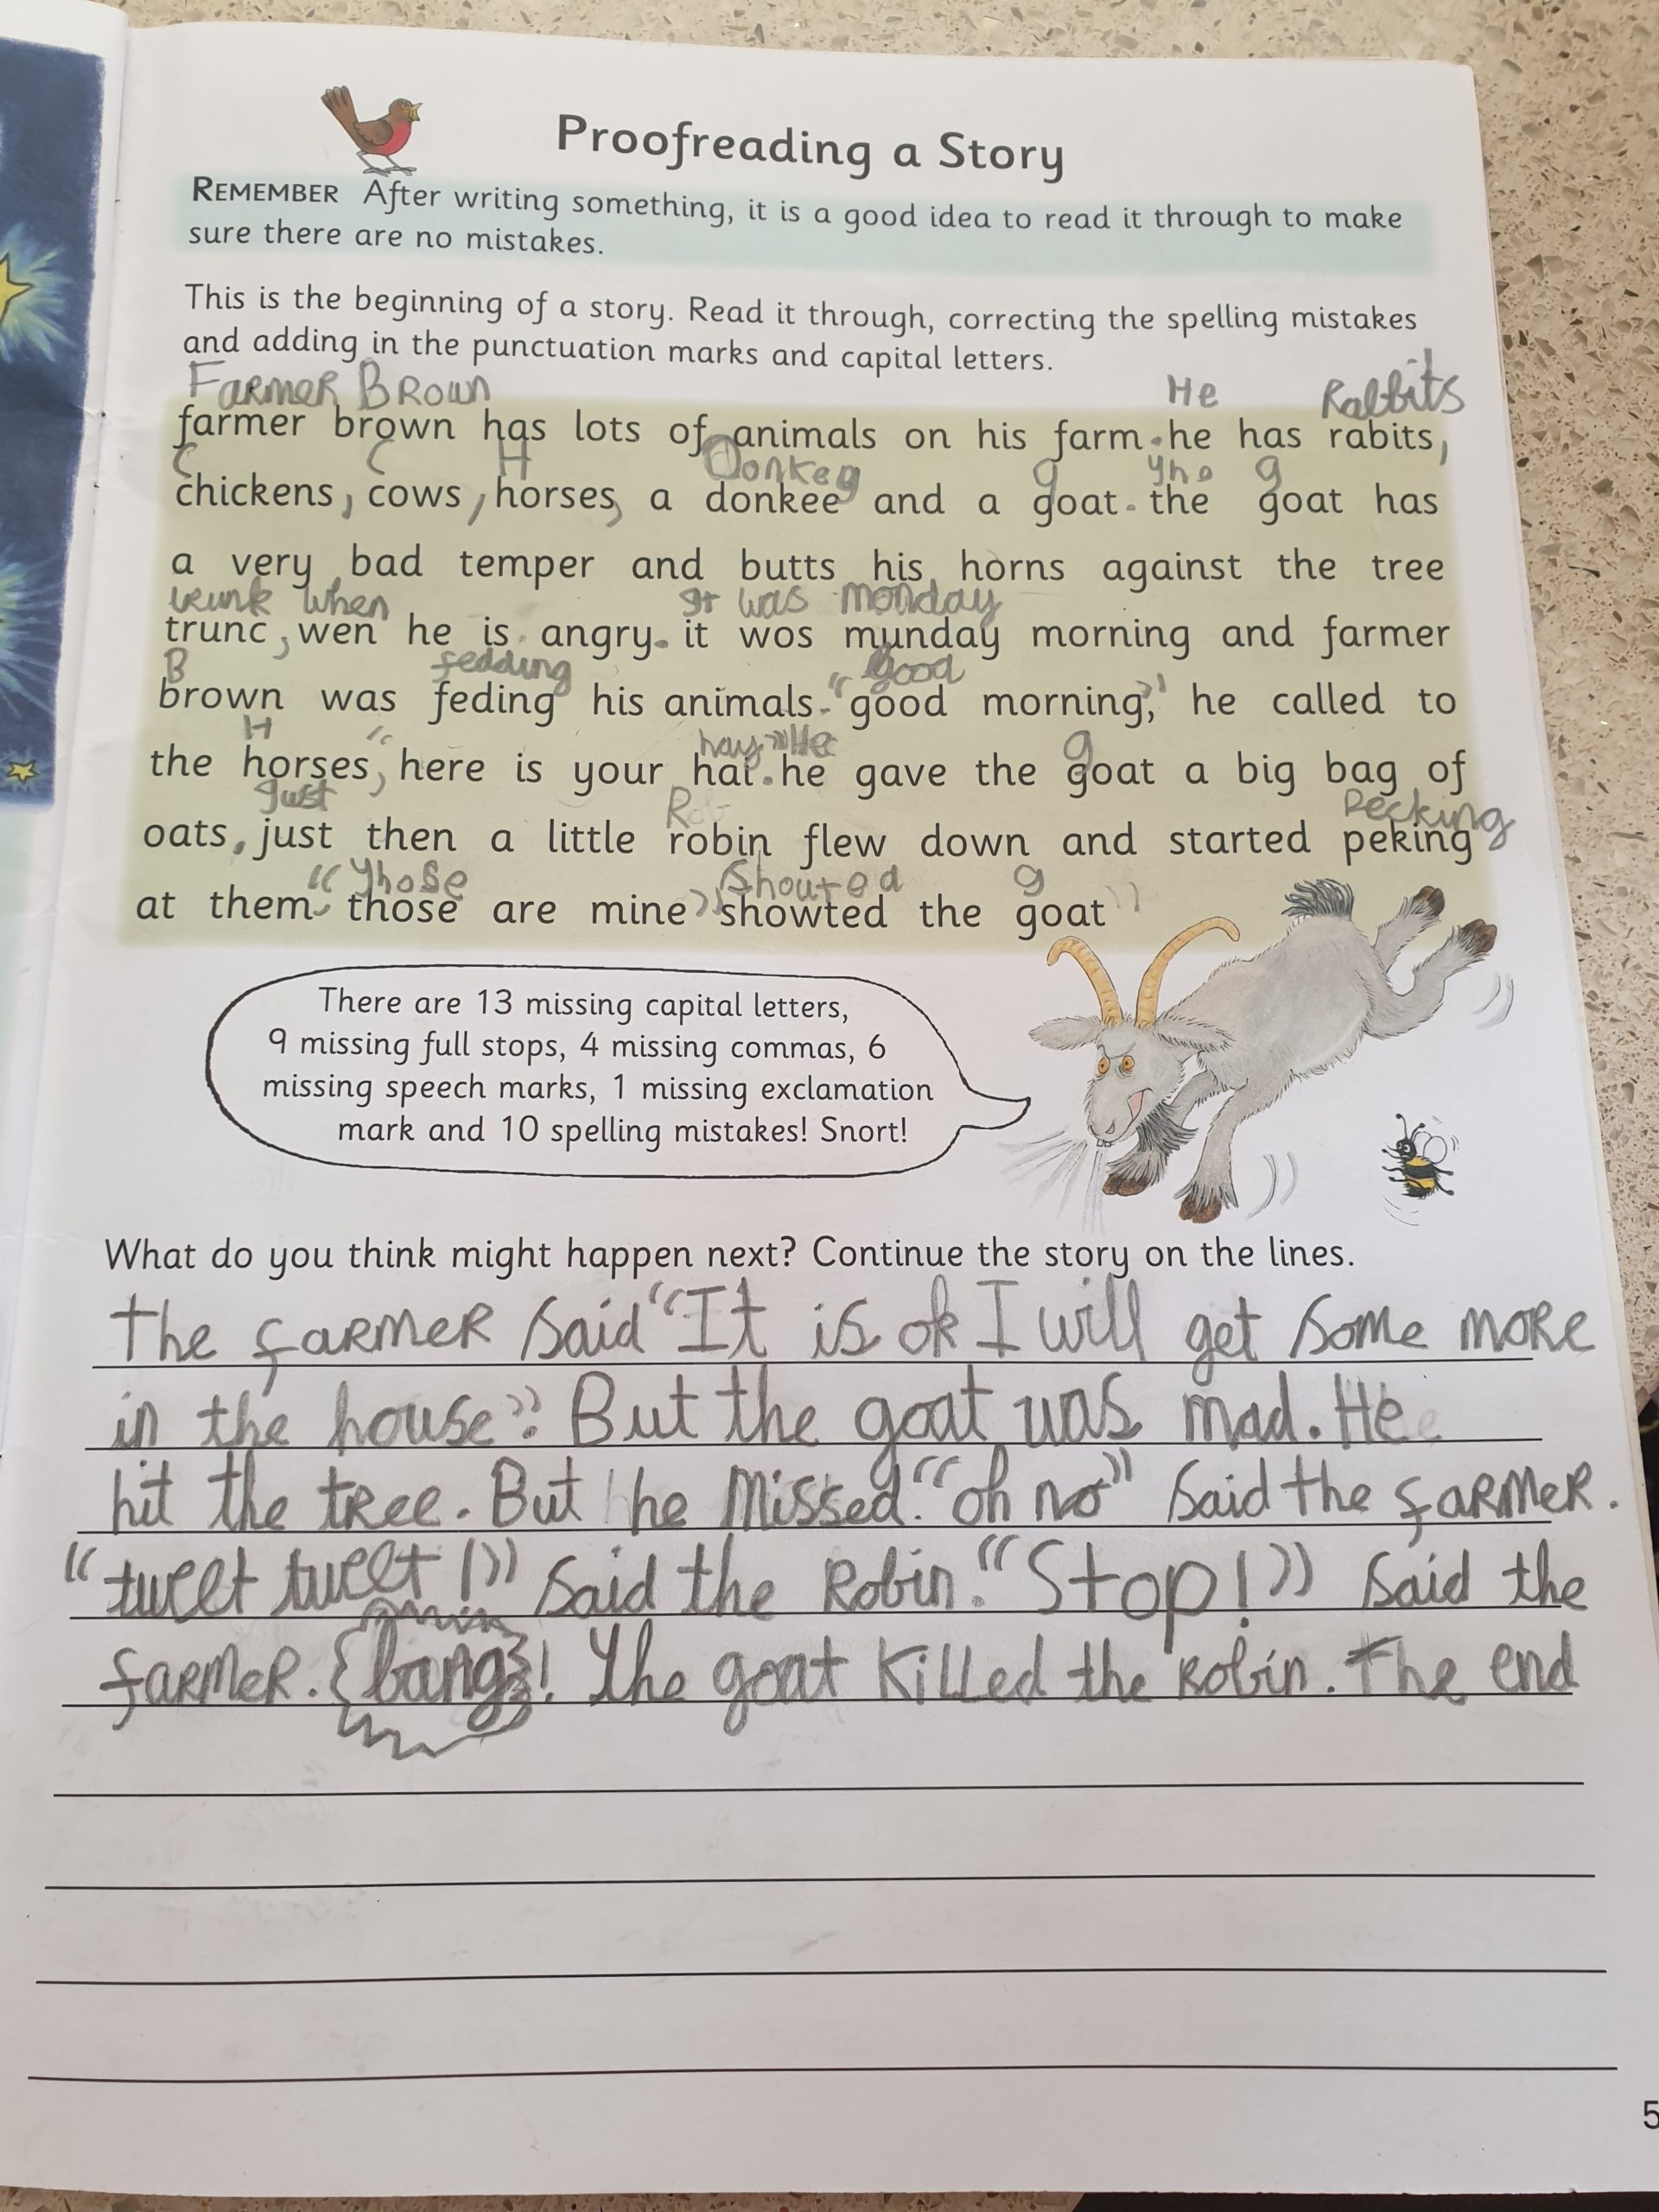 Proofreading a Story
REMEMBER After writing something, it is a good idea to read it through to make
sure there are no mistakes.
This is the beginning of a story. Read it through, correcting the spelling mistakes
and adding in the punctuation marks and capital letters.
Farmer Brown He Rabbits
farmer brown has lots of animals on his farm. he has rabits,
C C H Donkey g The g
chickens, cows, horses, a donkee and a goat. the goat has
a very bad temper and butts his horns against the tree
trunk when It was monday
trunc, wen he is angry. it wos munday morning and farmer
B fedding good
brown was feding his animals. "good morning," he called to
H " hay" He g
the horses, here is your hai. he gave the goat a big bag of
Just R Pecking
oats. just then a little robin flew down and started peking
" Those Shouted g
at them. those are mine" showted the goat
There are 13 missing capital letters,
9 missing full stops, 4 missing commas, 6
missing speech marks, 1 missing exclamation
mark and 10 spelling mistakes! Snort!
What do you think might happen next? Continue the story on the lines.
The farmer said "It is ok I will get some more
in the house". But the goat was mad. He
hit the tree. But he missed. "oh no" said the farmer.
"tweet tweet!" said the Robin. "Stop!" said the
farmer. {bang}! The goat killed the Robin. The end
5